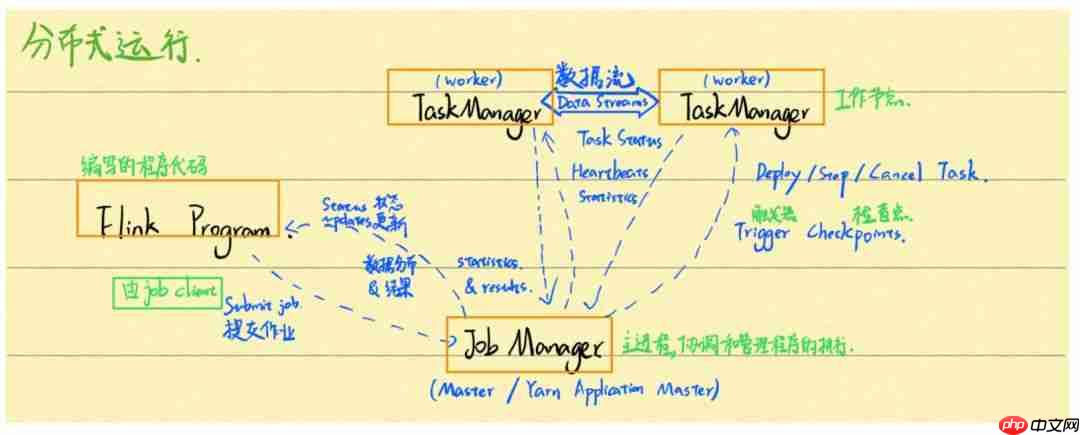 分布式运行.
(worker)
TaskManager
数据流
Data Streams
(worker)
TaskManager
工作节点.
Task Status
Heartbeats
Statistics
Deploy/Stop/Cancel Task.
触发
检查点.
Trigger Checkpoints.
编写的程序代码
Flink Program.
Status 状态
updates更新
数据分布
& 结果
statistics.
& results.
由job client
Submit job.
提交作业
Job Manager
主进程,协调和管理程序的执行.
(Master / Yarn Application Master)
php 中文网